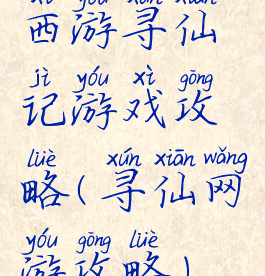 xī yóu xún xiān
西游寻仙
jì yóu xì gōng
记游戏攻
lüè xún xiān wǎng
略(寻仙网
yóu gōng lüè
游攻略)